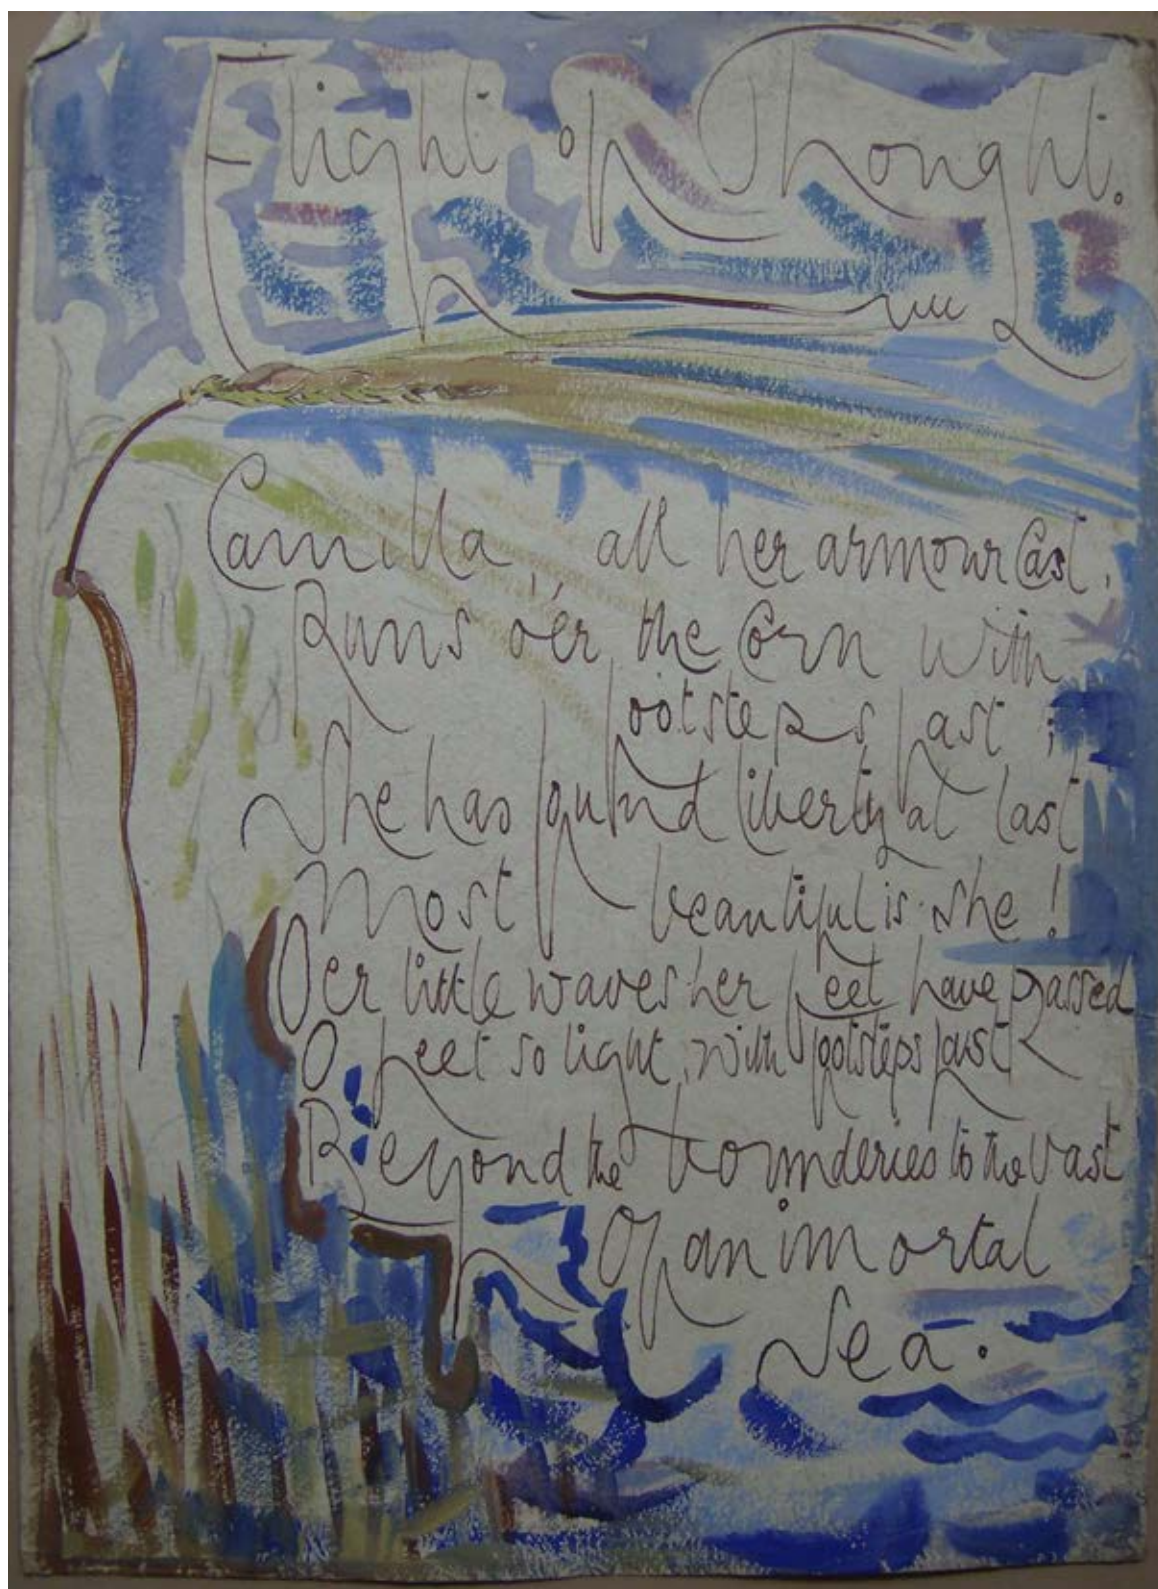 Flight of Thought.
Camilla, all her armour Cast,
Runs o'er the Corn with
footsteps fast;
She has found liberty at last
Most beautiful is she!
Oer little waves her feet have passed
O, feet so light, with footsteps fast
Beyond the bounderies to the Vast
Of an imortal
Sea.